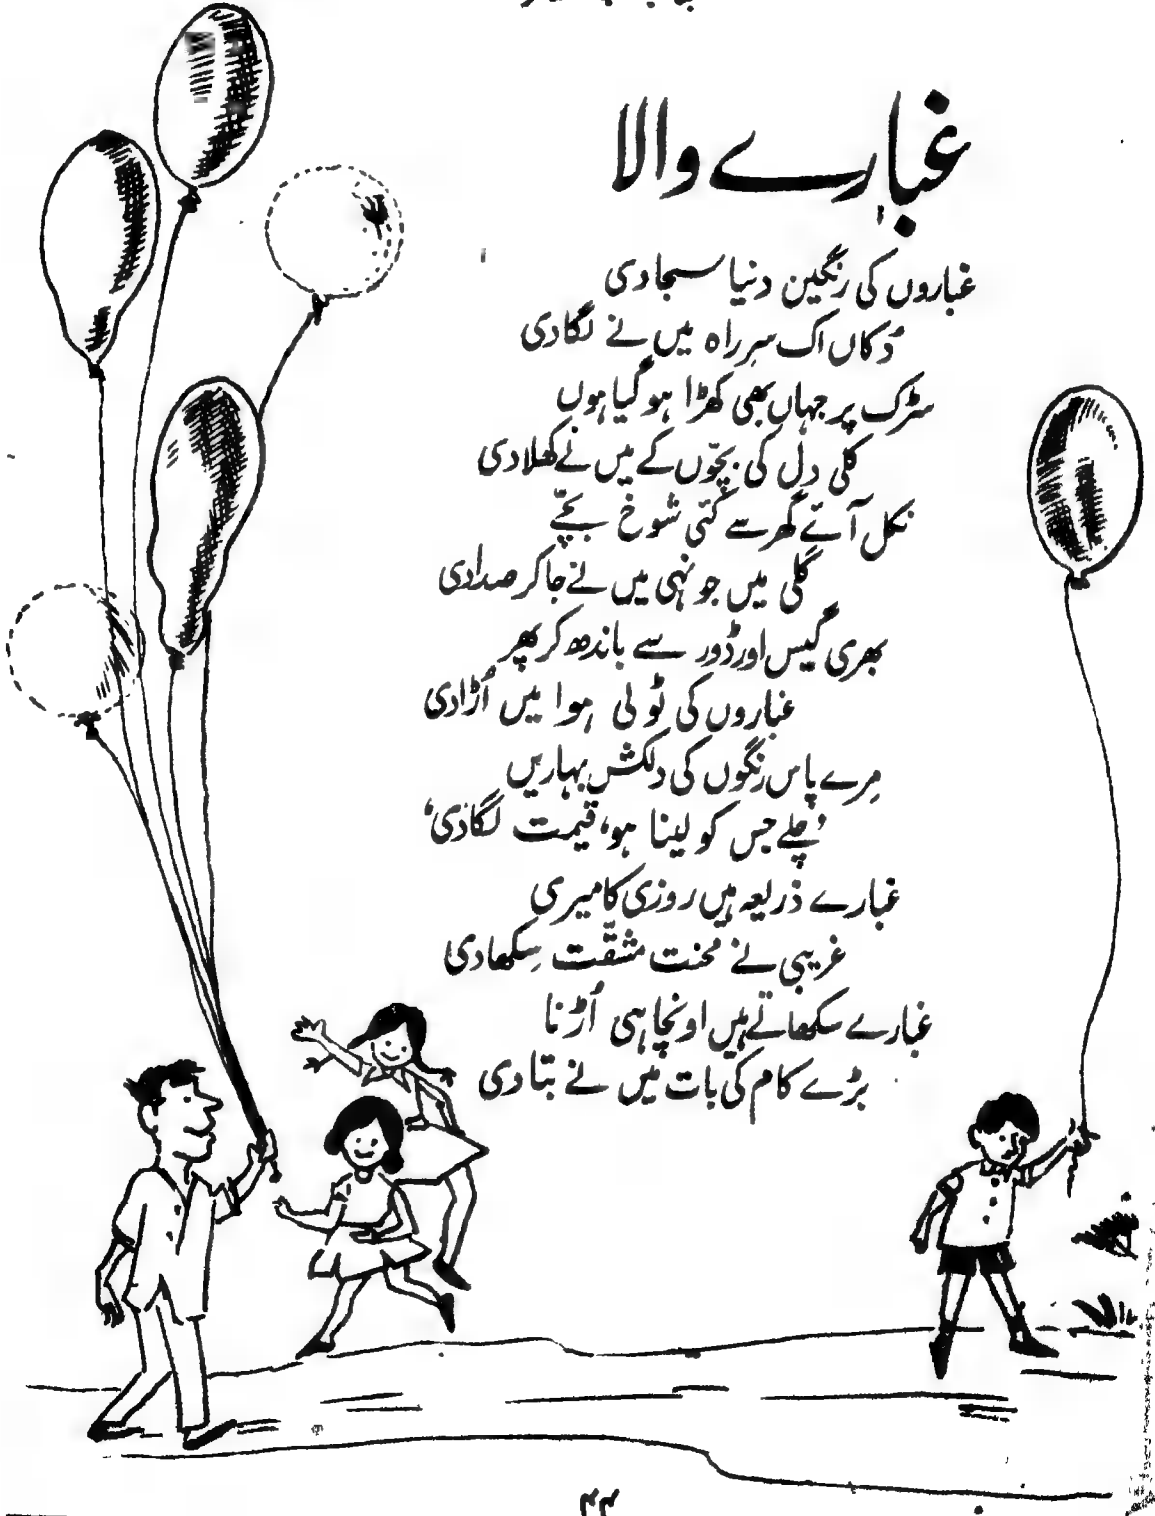 غبارے والا
غباروں کی رنگین دنیا سجا دی
دُکاں اک سرِ راہ میں نے لگا دی
سڑک پر جہاں بھی کھڑا ہو گیا ہوں
کلی دل کی بچّوں کے میں نے کھلا دی
نکل آئے گھر سے کئی شوخ بچّے
گلی میں جو نہی میں نے جا کر صدا دی
بھری گیس اور ڈور سے باندھ کر پھر
غباروں کی ٹولی ہوا میں اُڑا دی
مِرے پاس رنگوں کی دلکش بہاریں
’چلے جس کو لینا ہو، قیمت لگا دی‘
غبارے ذریعہ ہیں روزی کا میری
غریبی نے محنت مشقّت سِکھا دی
غبارے سکھاتے ہیں اونچا ہی اُڑنا
بڑے کام کی بات میں نے بتا دی
۴۴